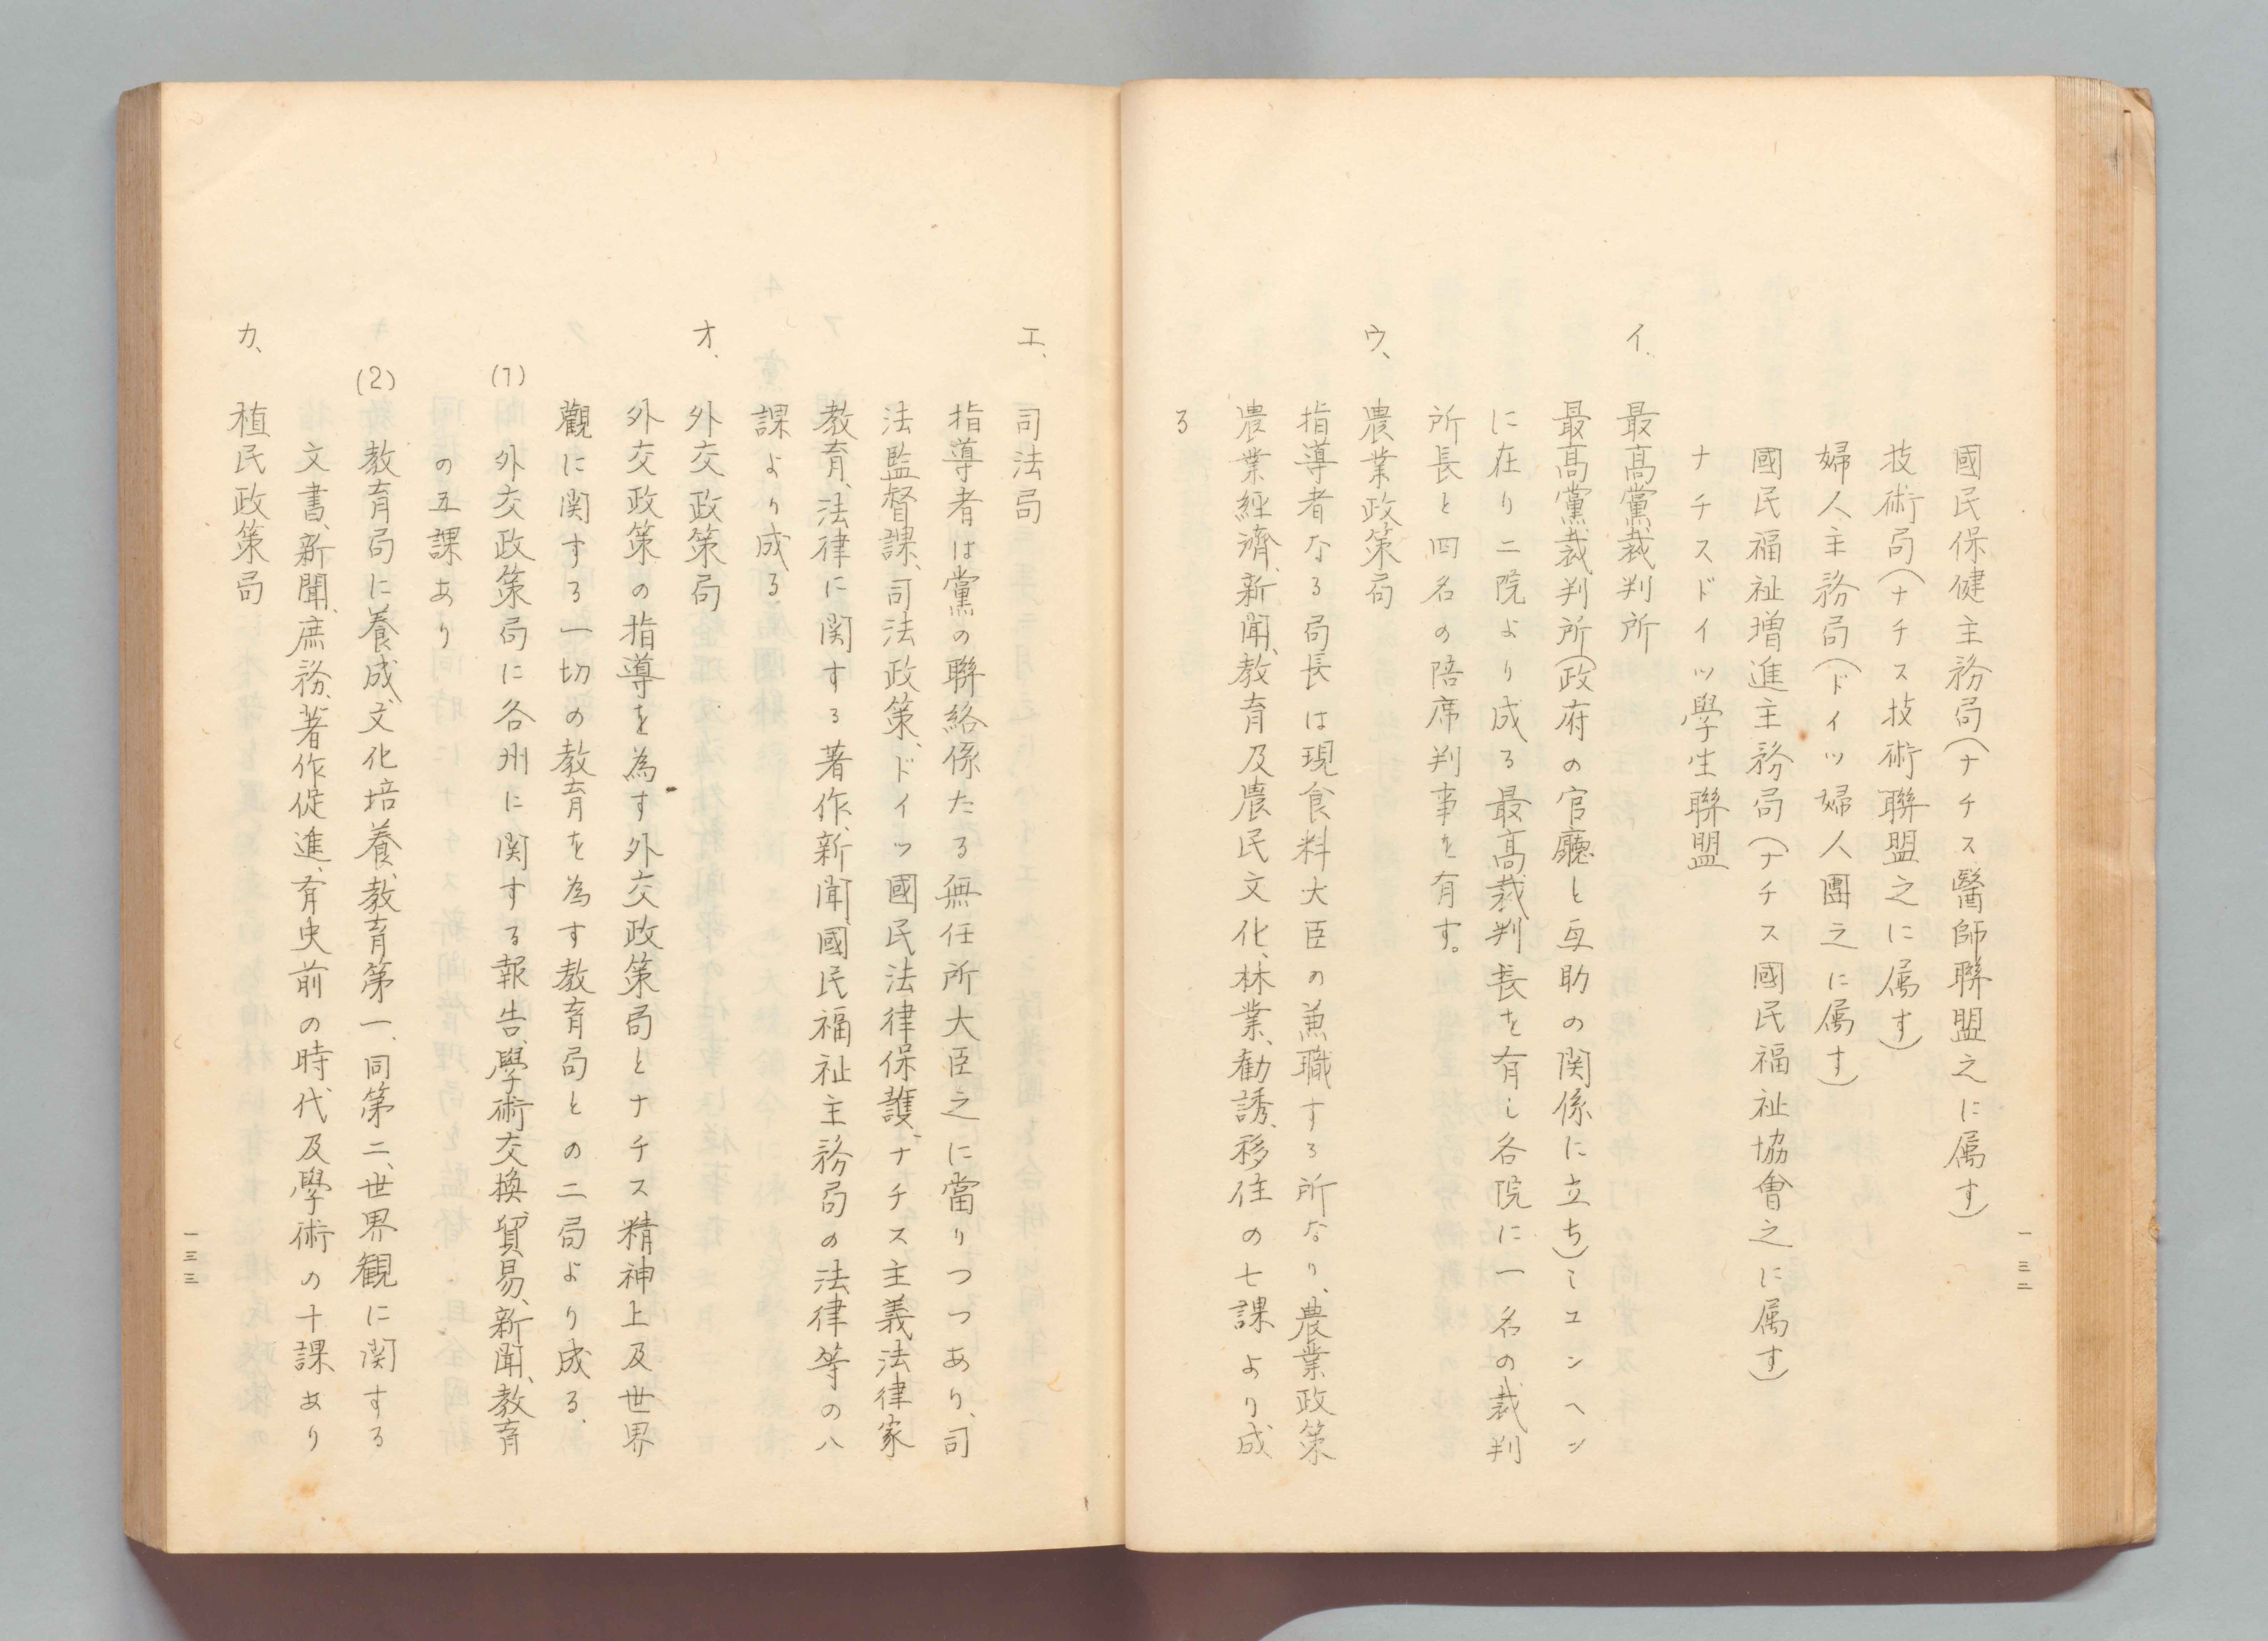 國民保健主務局(ナチス醫師聯盟之に属す)
技術局(ナチス技術聯盟之に属す)
婦人主務局(ドイツ婦人團之に属す)
國民福祉増進主務局(ナチス國民福祉協會之に属す)
ナチスドイツ學生聯盟
イ.最高黨裁判所
最高黨裁判所(政府の官廳と互助の関係に立ち)ミユンヘン
に在り二院より成る最高裁判長を有し各院に一名の裁判
所長と四名の陪席判事を有す。
ウ、農業政策局
指導者なる局長は現食料大臣の兼職する所なり、農業政策
農業経濟、新聞、教育及農民文化、林業、勧誘、移住の七課より成
る
一三二
エ、司法局
指導者は黨の聯絡係たる無任所大臣之に當りつつあり、司
法監督課、司法政策、ドイツ國民法律保護、ナチス主義法律家
教育、法律に関する著作、新聞、國民福祉主務局の法律等の八
課より成る
オ.外交政策局
外交政策の指導を為す外交政策局とナチス精神上及世界
觀に関する一切の教育を為す教育局との二局より成る、
(1)外交政策局に各州に関する報告、學術交換、貿易、新聞、教育
の五課あり
(2)教育局に養成、文化培養、教育第一、同第二、世界観に関する
文書、新聞、庶務、著作促進、有史前の時代及學術の十課あり
カ、植民政策局
一三三